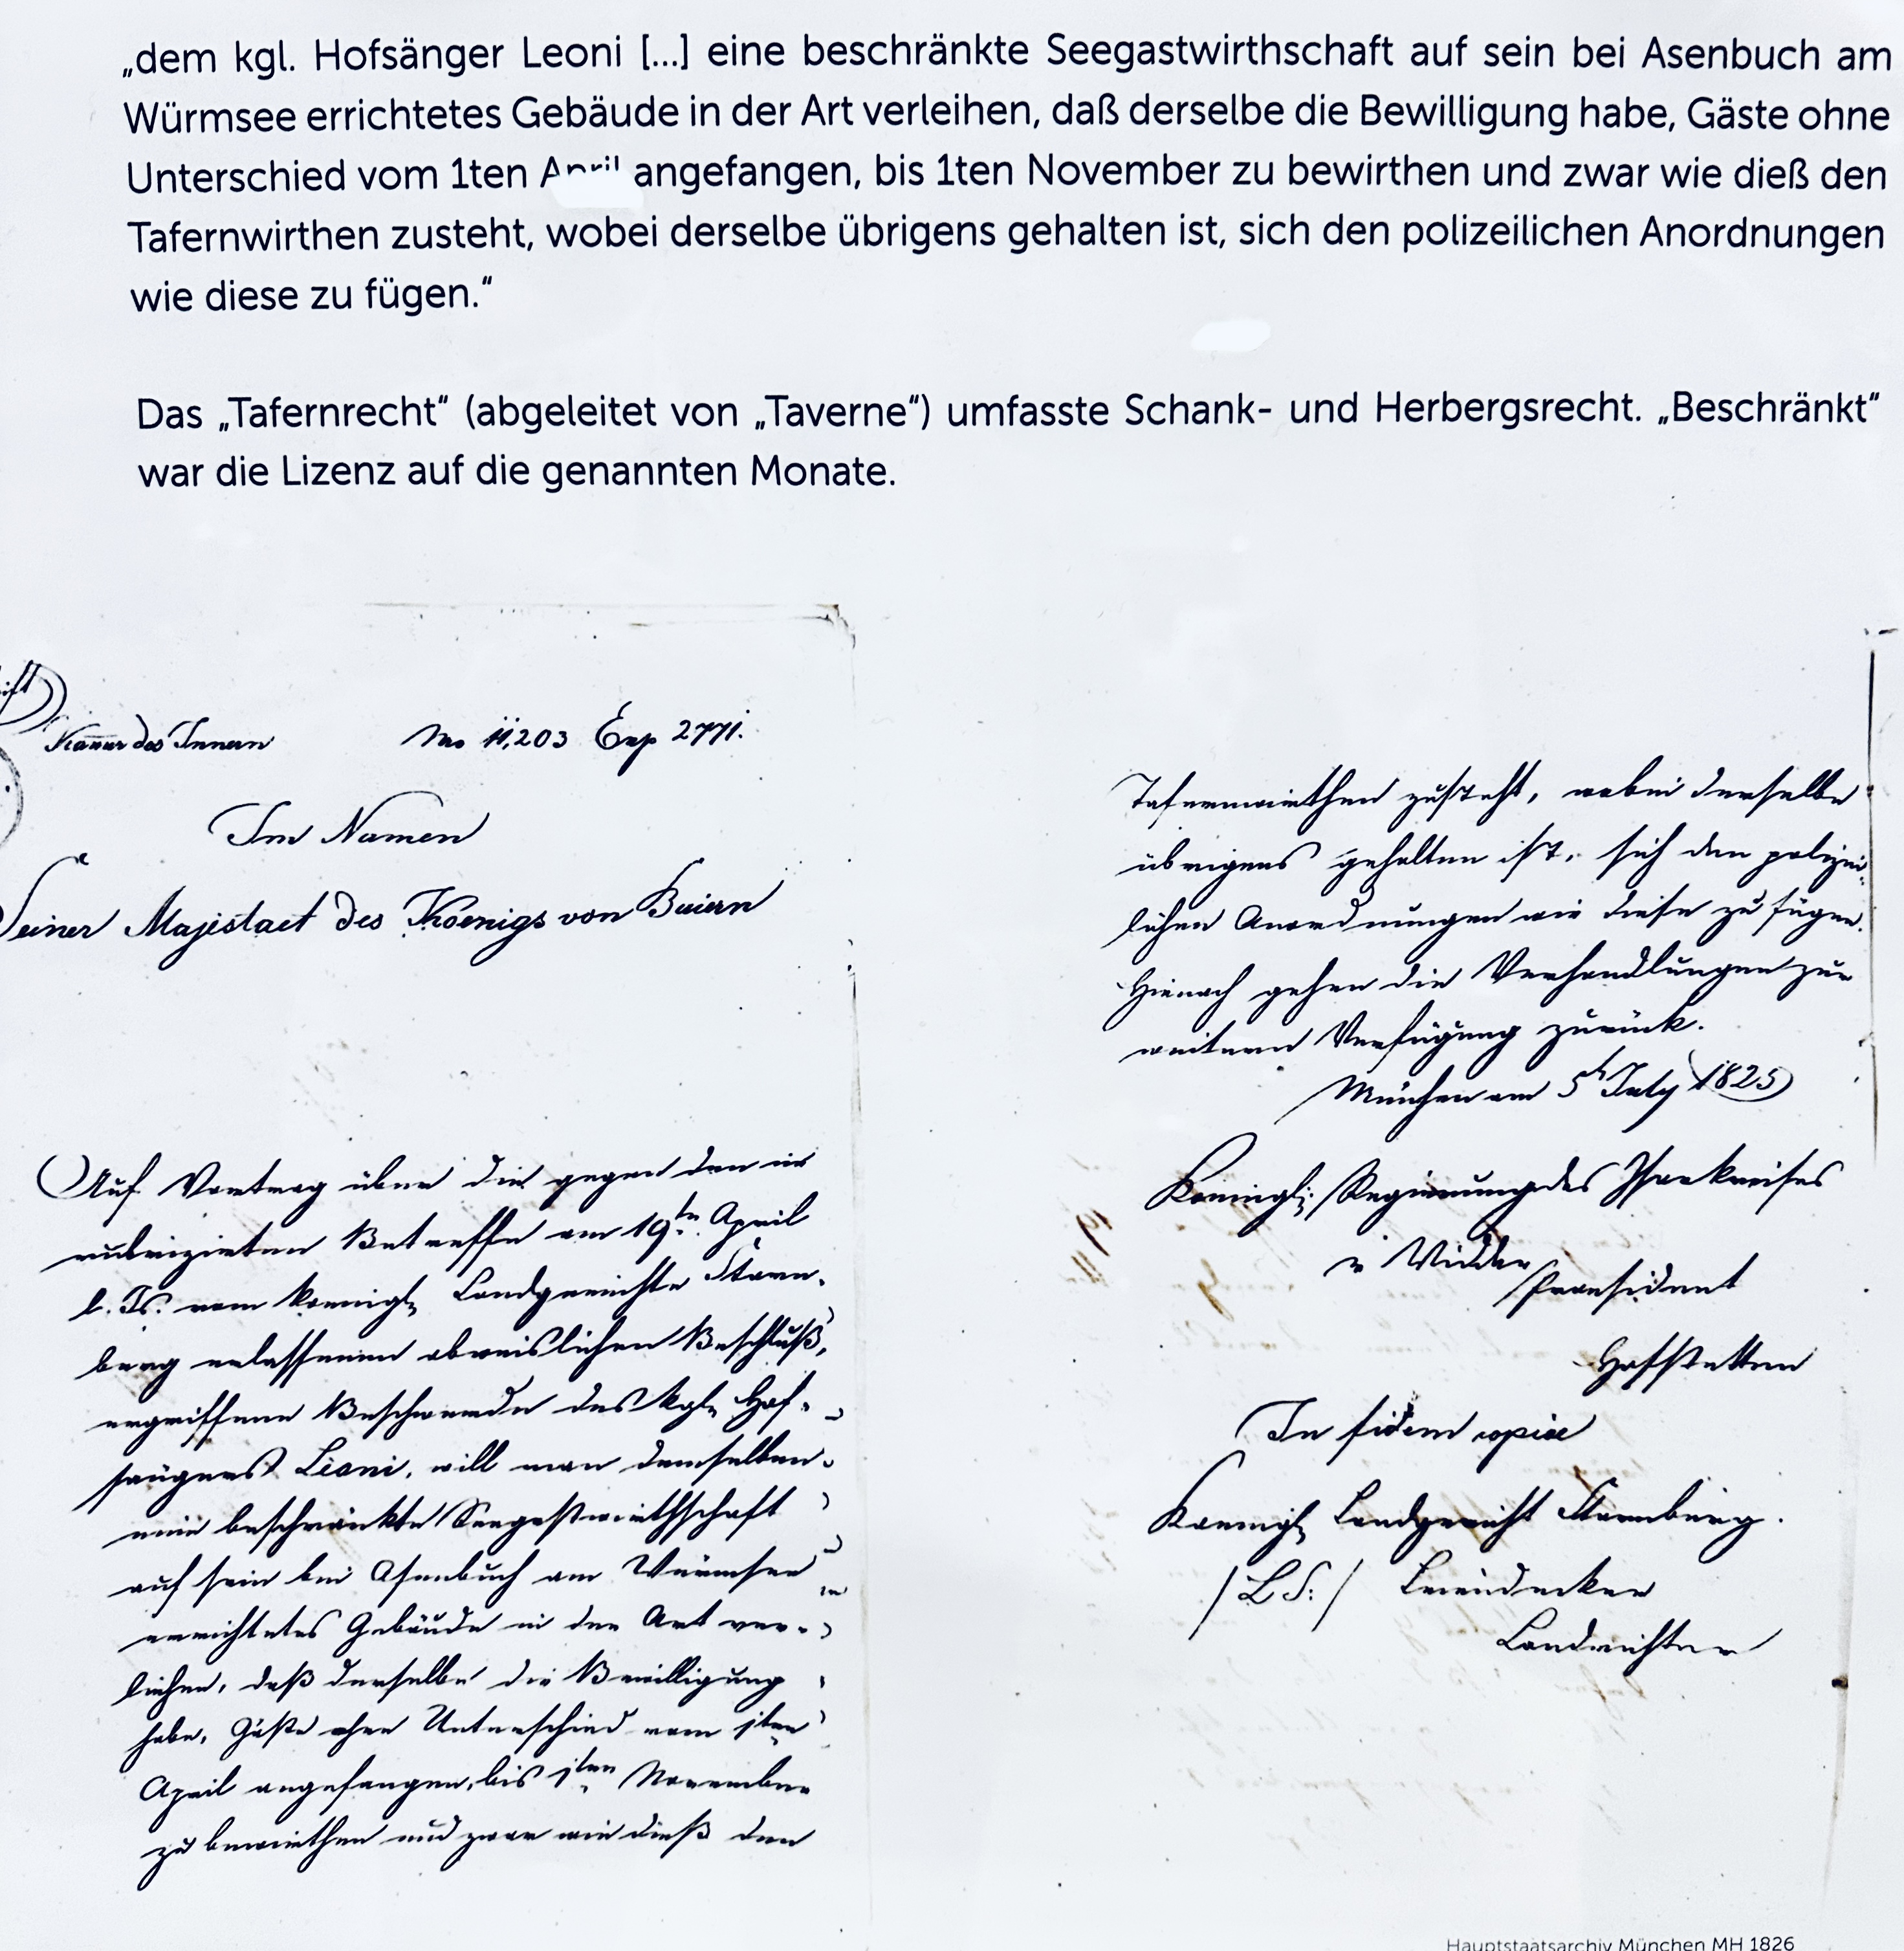 „dem kgl. Hofsänger Leoni [...] eine beschränkte Seegastwirthschaft auf sein bei Asenbuch am
Würmsee errichtetes Gebäude in der Art verleihen, daß derselbe die Bewilligung habe, Gäste ohne
Unterschied vom 1ten April angefangen, bis 1ten November zu bewirthen und zwar wie dieß den
Tafernwirthen zusteht, wobei derselbe übrigens gehalten ist, sich den polizeilichen Anordnungen
wie diese zu fügen.“
Das „Tafernrecht“ (abgeleitet von „Taverne“) umfasste Schank- und Herbergsrecht. „Beschränkt“
war die Lizenz auf die genannten Monate.
des Innern No 11,203 Exp 2771.
Im Namen
Seiner Majestaet des Koenigs von Baiern
Auf Vortrag über die gegen den in
rubrizirten Betreffe am 19ten April
l. Js. vom koenigl. Landgerichte Starn-
berg erlassenen abweislichen Beschluß,
ergriffene Beschwerde des kgl. Hof-
sängers Leoni, will man demselben
eine beschränkte Seegastwirthschaft
auf sein bei Asenbuch am Würmsee
errichtetes Gebäude in der Art ver-
liehen, daß derselbe die Bewilligung
habe, Gäste ohne Unterschied vom 1ten
April angefangen, bis 1ten November
zu bewirthen und zwar wie dieß den
Tafernwirthen zusteht, wobei derselbe
übrigens gehalten ist, sich den polizei-
lichen Anordnungen wie diese zu fügen.
Hienach gehen die Verhandlungen zur
weitern Verfügung zurück.
München am 5t July 1825
Königl. Regierung des Isarkreises
v Widder
Praesident
Hofstetten
In fidem copiæ
Koenigl. Landgericht Starnberg.
/LS:/
Landrichter
Hauptstaatsarchiv München MH 1826